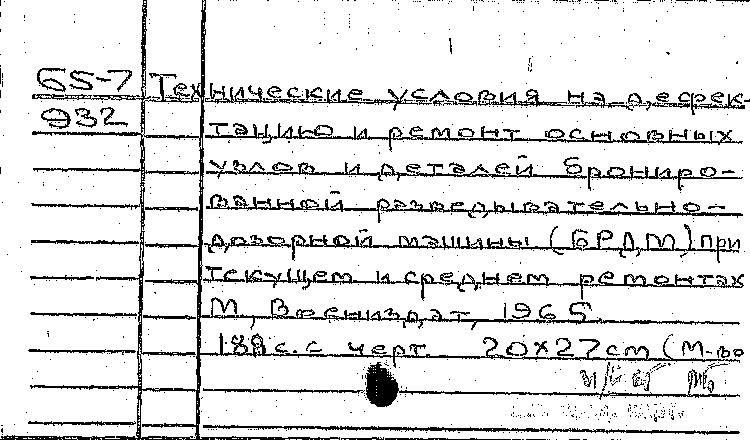 65-7 Технические условия на дефек-
932 тацию и ремонт основных
узлов и деталей брониро-
ванной разведывательно-
дозорной машины (БРДМ) при
текущем и среднем ремонтах
М, Воениздат, 1965
188 с. с черт. 20x27 см (М-во